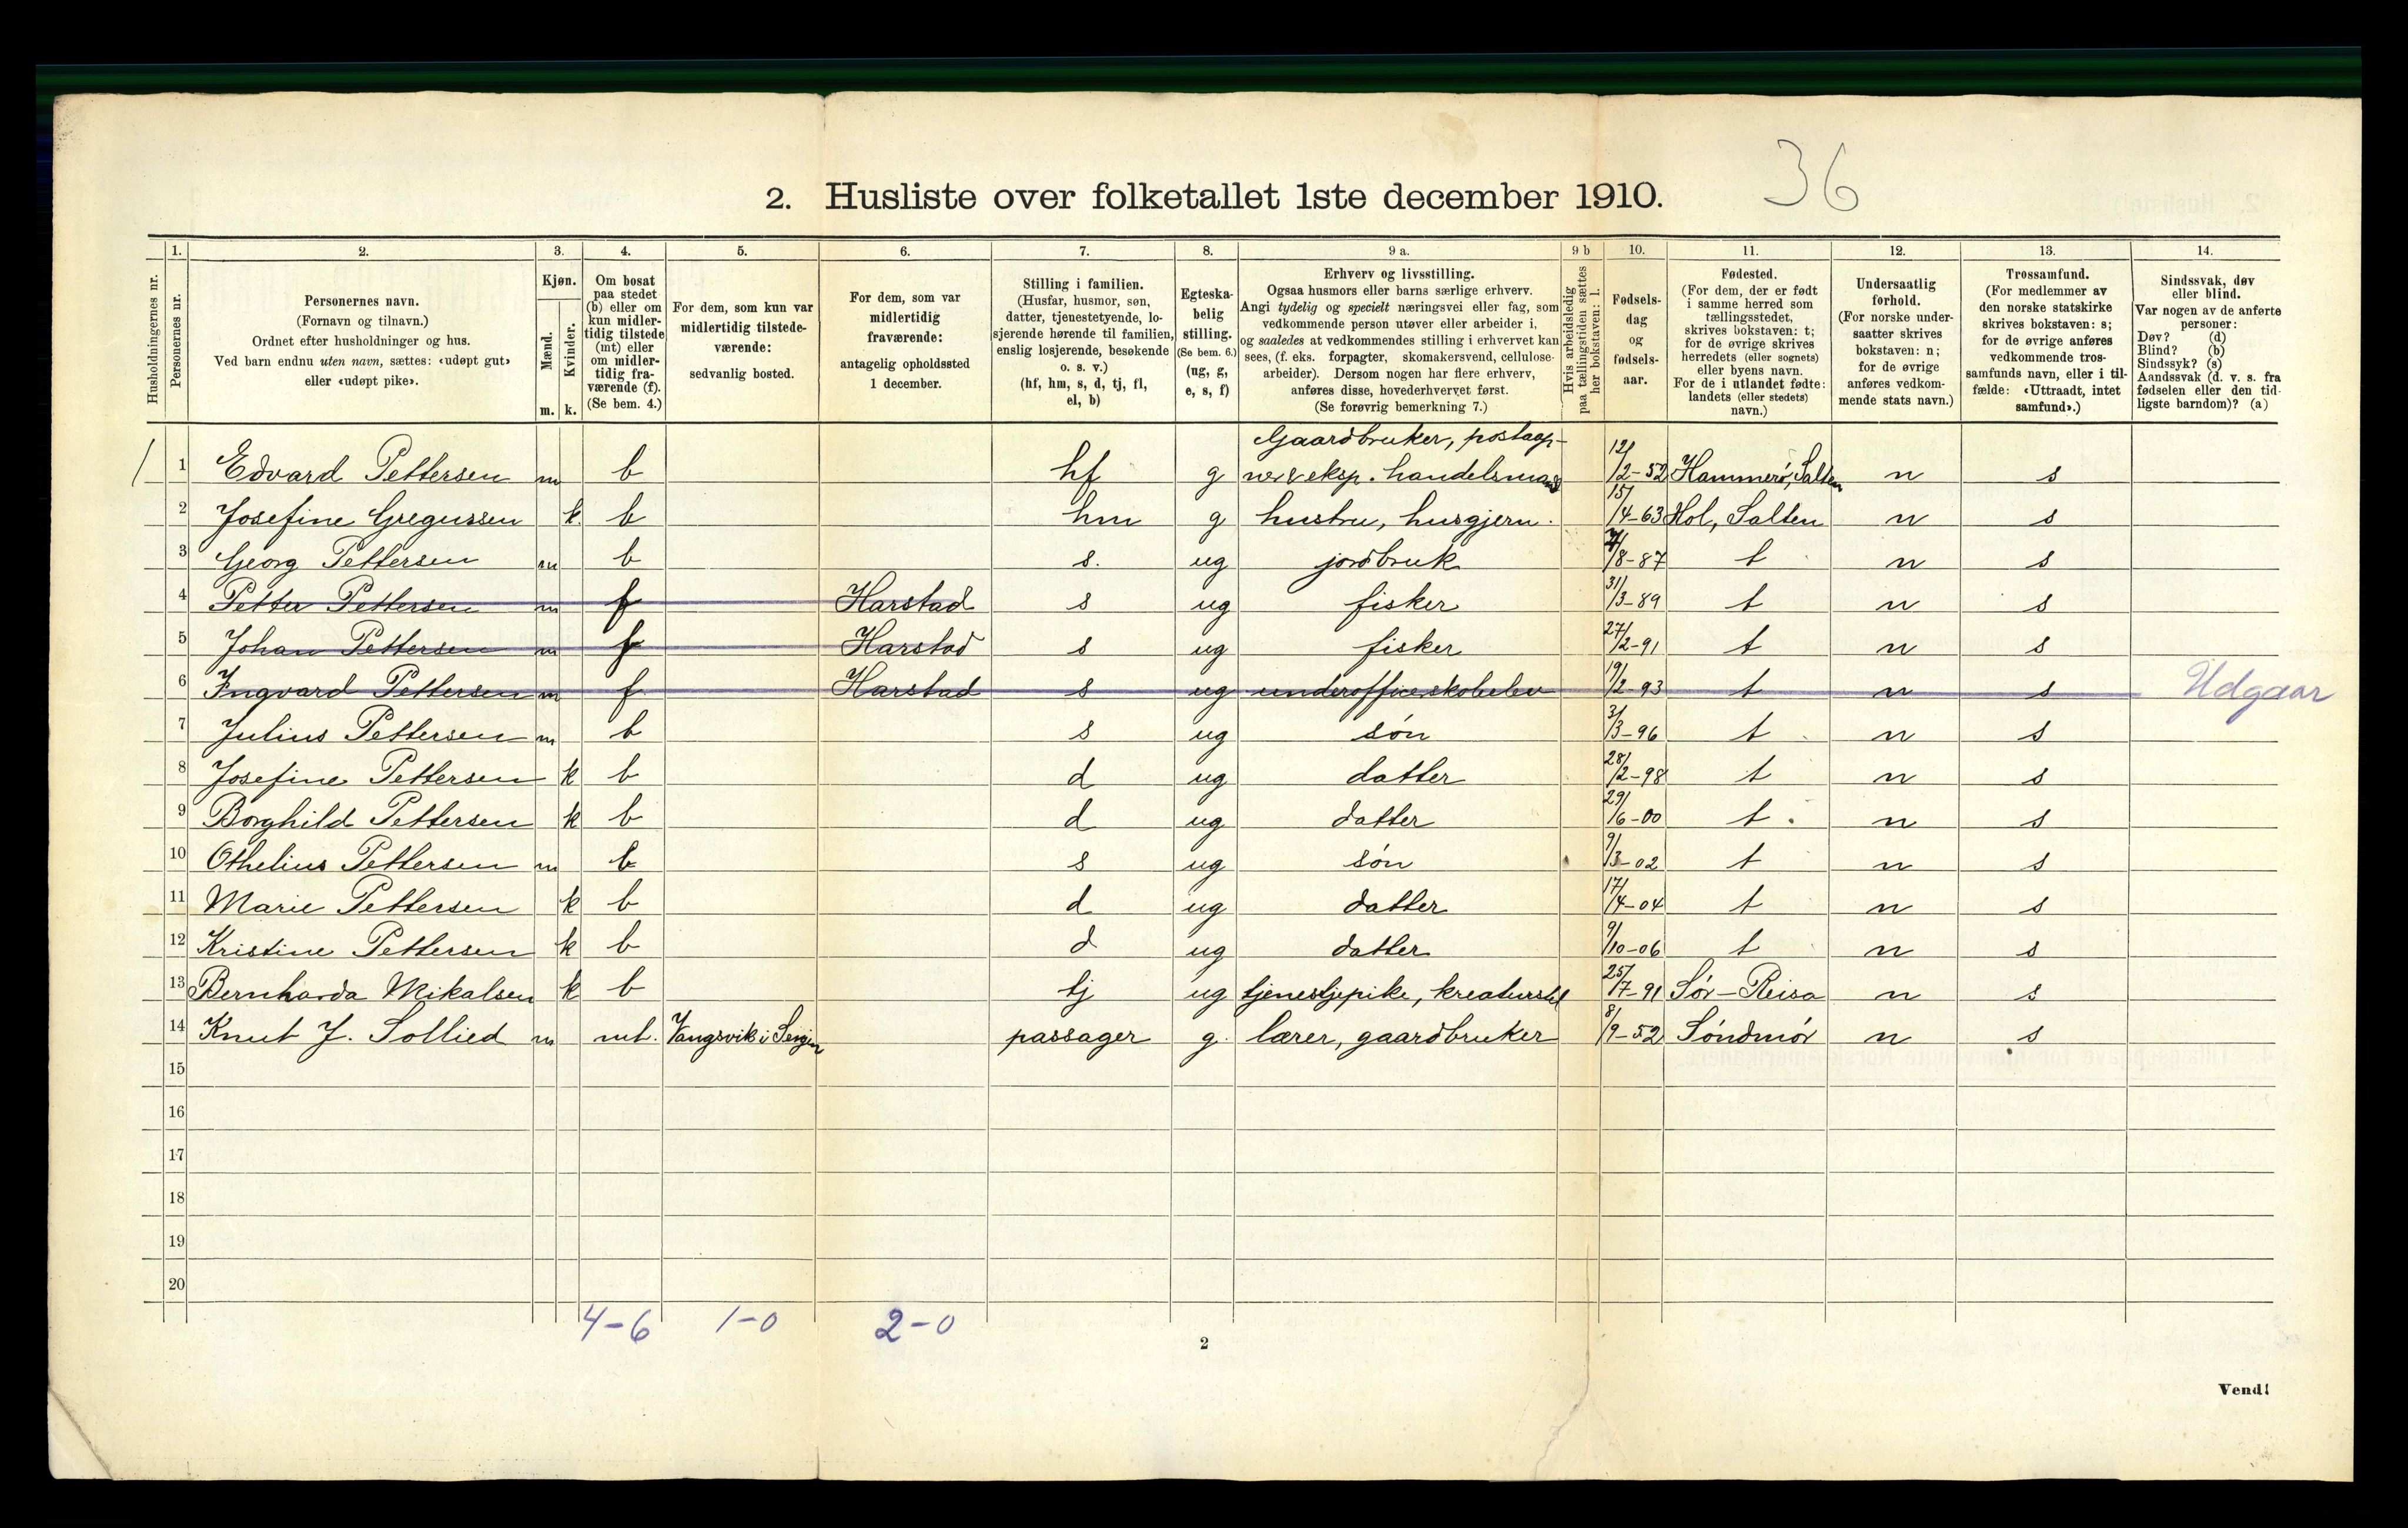 36
2. Husliste over folketallet 1ste december 1910.
Husholdningernes nr.
1. Personernes nr.
2. Personernes navn.
(Fornavn og tilnavn.)
Ordnet efter husholdninger og hus.
Ved barn endnu uten navn, sættes: «udøpt gut»
eller «udøpt pike».
3. Kjøn.
Mænd. m.
Kvinder. k.
4. Om bosat
paa stedet
(b) eller om
kun midler-
tidig tilstede
(mt) eller
om midler-
tidig fra-
værende (f).
(Se bem. 4.)
5. For dem, som kun var
midlertidig tilstede-
værende:
sedvanlig bosted.
6. For dem, som var
midlertidig
fraværende:
antagelig opholdssted
1 december.
7. Stilling i familien.
(Husfar, husmor, søn,
datter, tjenestetyende, lo-
sjerende hørende til familien,
enslig losjerende, besøkende
o. s. v.)
(hf, hm, s, d, tj, fl,
el, b)
8. Egteska-
belig
stilling.
(Se bem. 6.)
(ug, g,
e, s, f)
9 a. Erhverv og livsstilling.
Ogsaa husmors eller barns særlige erhverv.
Angi tydelig og specielt næringsvei eller fag, som
vedkommende person utøver eller arbeider i,
og saaledes at vedkommendes stilling i erhvervet kan
sees, (f. eks. forpagter, skomakersvend, cellulose-
arbeider). Dersom nogen har flere erhverv,
anføres disse, hovederhvervet først.
(Se forøvrig bemerkning 7.)
9 b Hvis arbeidsledig
paa tællingstiden sættes
her bokstaven: l.
10. Fødsels-
dag
og
fødsels-
aar.
11. Fødested.
(For dem, der er født
i samme herred som
tællingsstedet,
skrives bokstaven: t;
for de øvrige skrives
herredets (eller sognets)
eller byens navn.
For de i utlandet fødte:
landets (eller stedets)
navn.)
12. Undersaatlig
forhold.
(For norske under-
saatter skrives
bokstaven: n;
for de øvrige
anføres vedkom-
mende stats navn.)
13. Trossamfund.
(For medlemmer av
den norske statskirke
skrives bokstaven: s;
for de øvrige anføres
vedkommende tros-
samfunds navn, eller i til-
fælde: «Uttraadt, intet
samfund».)
14. Sindssvak, døv
eller blind.
Var nogen av de anførte
personer:
Døv? (d)
Blind? (b)
Sindssyk? (s)
Aandssvak (d. v. s. fra
fødselen eller den tid-
ligste barndom)? (a)
Gaardbruker, postaap-
1 1 Edvard Pettersen m b hf g ner & eksp. handelsmand 12/12-52 Hammerø, Salten n s
2 Josefine Gregussen k. b hm g hustru, husgjern. 15/4-63 Hol, Salten n s
3 Georg Pettersen m b s. ug jordbruk /8-87 t n s
4 Petter Pettersen m f Harstad s ug fisker 31/3-89 t n s
5 Johan Pettersen m f Harstad s ug fisker 27/2-91 t n s
6 Ingvard Pettersen m f Harstad s ug underofficerskoleelev 19/2-93 t n s Udgaar
7 Julius Pettersen m b s ug søn 3/3-96 t n s
8 Josefine Pettersen k b d ug datter 28/2-98 t n s
9 Borghild Pettersen k b d ug datter 29/6-00 t. n s
10 Othelius Pettersen m b s ug søn 9/3-02 t n s
11 Marie Pettersen k b d ug datter 17/4-04 t n s
12 Kristine Pettersen k b d ug datter 9/10-06 t n s
13 Bernharda Mikalsen k b tj ug tjenestjepike, kreaturstel 25/7-91 Sør-Reisa n s
14 Knut J. Sollied m mt. Vangsvik i Senjen passager g. lærer, gaardbruker 8/9-52 Søndmør n s
15
16
17
18
19
20
4-6 1-0 2-0
2
Vend!